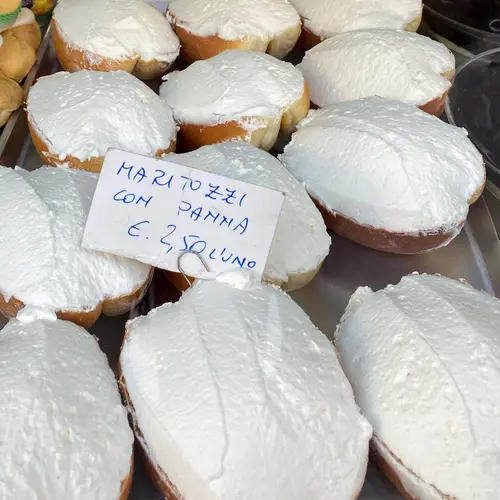 MARITOZZI
COM PANNA
€. 2,50 L'UNO